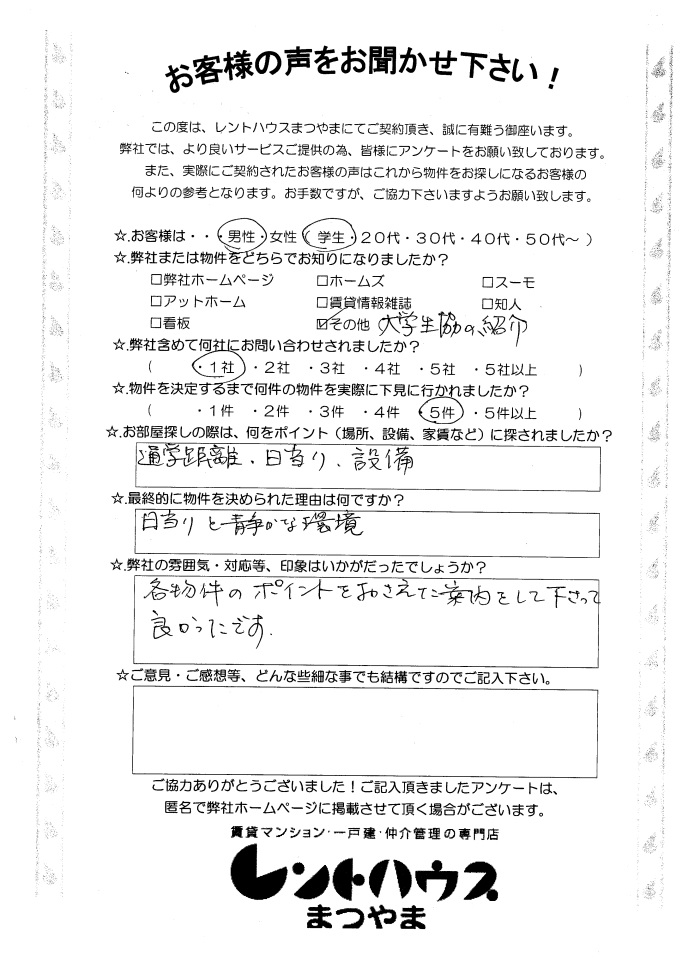 お客様の声をお聞かせ下さい！
この度は、レントハウスまつやまにてご契約頂き、誠に有難う御座います。
弊社では、より良いサービスご提供の為、皆様にアンケートをお願い致しております。
また、実際にご契約されたお客様の声はこれから物件をお探しになるお客様の
何よりの参考となります。お手数ですが、ご協力下さいますようお願い致します。
☆.お客様は・・・男性・女性（ 学生・20代・30代・40代・50代～ ）
☆.弊社または物件をどちらでお知りになりましたか？
□弊社ホームページ □ホームズ □スーモ
□アットホーム □賃貸情報雑誌 □知人
□看板 ☑その他 大学生協の紹介
☆.弊社含めて何社にお問い合わせされましたか？
（ ・1社 ・2社 ・3社 ・4社 ・5社 ・5社以上 ）
☆.物件を決定するまで何件の物件を実際に下見に行かれましたか？
（ ・1件 ・2件 ・3件 ・4件 ・5件 ・5件以上 ）
☆.お部屋探しの際は、何をポイント（場所、設備、家賃など）に探されましたか？
通学距離、日当り、設備
☆.最終的に物件を決められた理由は何ですか？
日当りと静かな環境
☆.弊社の雰囲気・対応等、印象はいかがだったでしょうか？
各物件のポイントをおさえてご案内をして下さって
良かったです.
☆ご意見・ご感想等、どんな些細な事でも結構ですのでご記入下さい。
ご協力ありがとうございました！ご記入頂きましたアンケートは、
匿名で弊社ホームページに掲載させて頂く場合がございます。
賃貸マンション・一戸建・仲介管理の専門店
レントハウス
まつやま